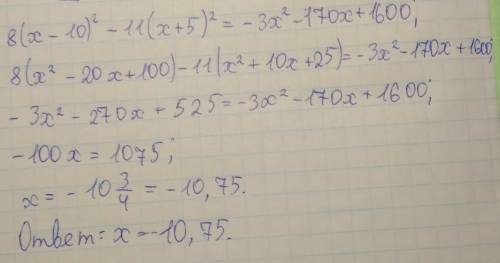 8(x - 10)² - 11(x+5)² = -3x² - 170x + 1600;
8(x² - 20x + 100) - 11(x² + 10x + 25) = -3x² - 170x + 1600;
- 3x² - 270x + 525 = -3x² - 170x + 1600;
-100x = 1075;
x = - 10 3/4 = -10,75.
Ответ: x = -10,75.